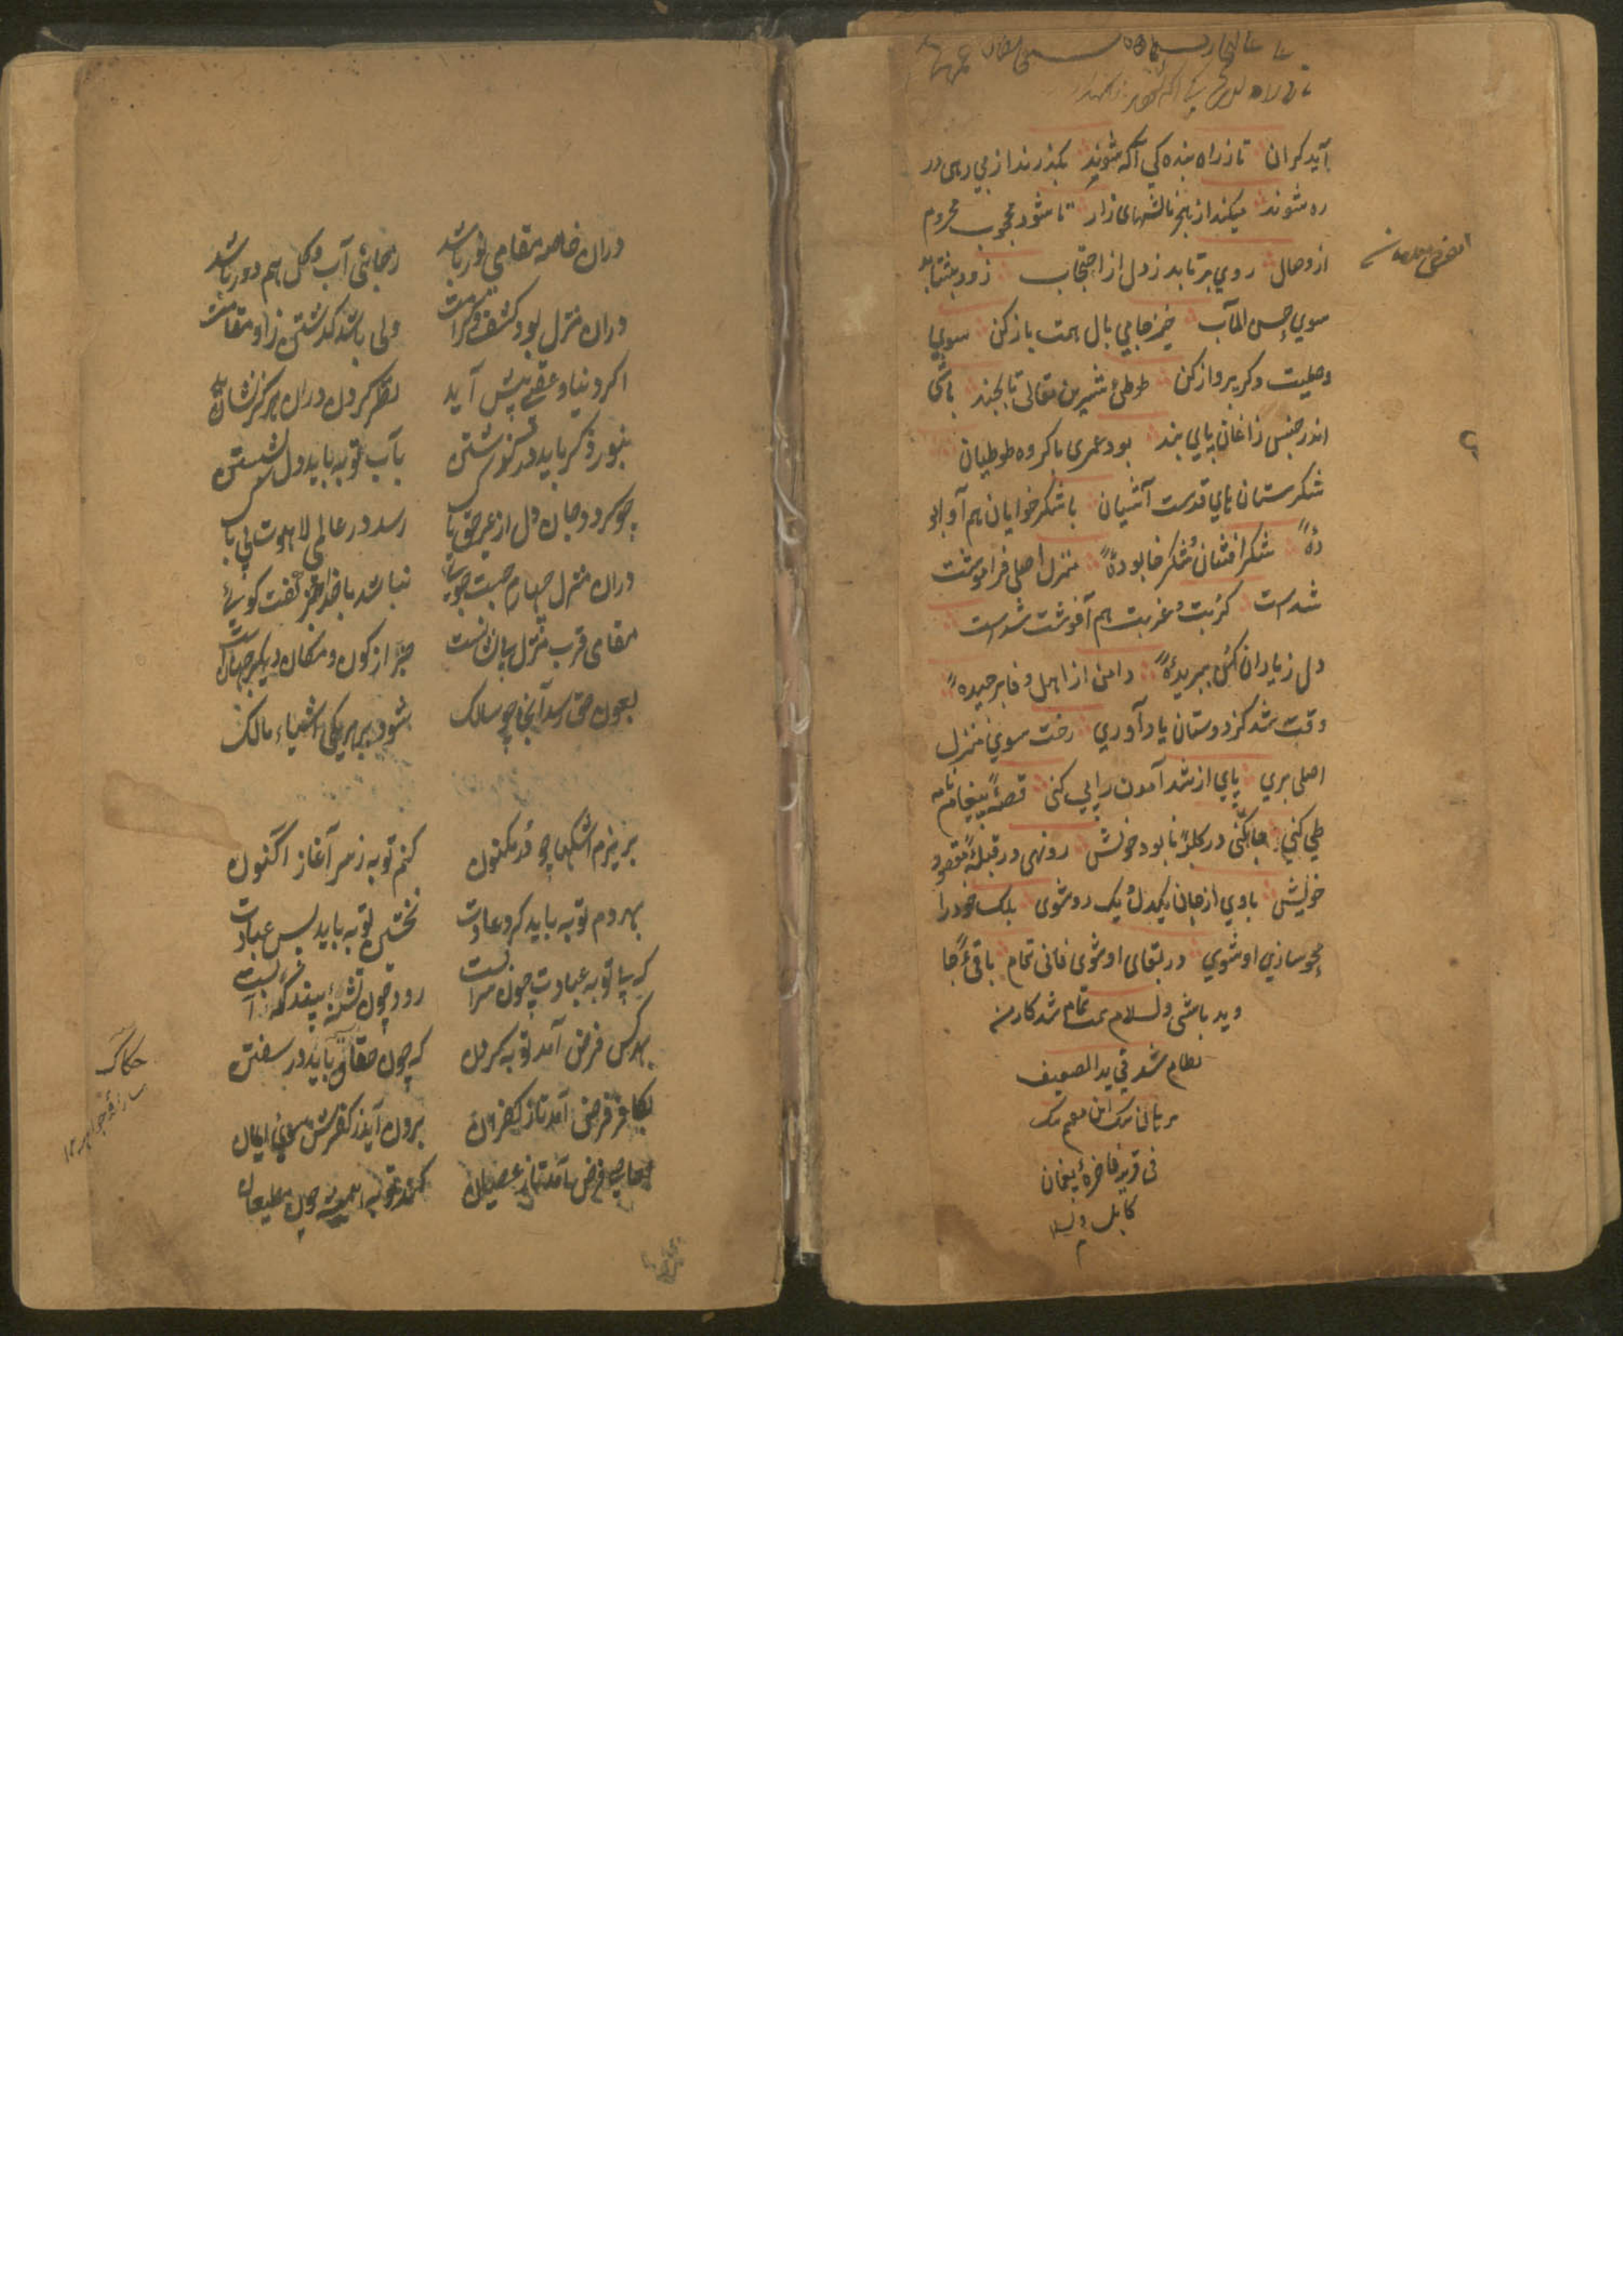 آید کران تا ز راه بنده کی آکه شوند بکذرند از بی رهی در
ره شوند میکند از بهر نالشهای زار تا شود محجوب محروم
از وصال روی برتابد ز دل از احتجاب زود بشتابد
سوی حسن المآب خیز جامی بال همت باز کن سوی
وصلیت دکر پرواز کن طوطیٔ شیرین مقالی تا بچند باشی
اندر حبس زاغان پای بند بود عمری با کروه طوطیان
شکرستان های قدست آشیان با شکر خوایان هم آوا بو
دهٔ شکر افشان و شکر خا بودهٔ منزل اصلی فراموشت
شدست کربت و غربت هم آغوشت شدست
دل ز یاران کهن ببریدهٔ دامن از اهل وفا برچیدهٔ
وقت شد کز دوستان یاد آوری رخت سوی منزل
اصلی بری پای از شد آمدن را پی کنی قصهٔ پیغام نامه
طی کنی جا کنی در کلبهٔ نابود خویش رو نهی در قبلهٔ مقصود
خویش با وی از جان یکدل و یک رو شوی بلک خود را
محو سازی او شوی در بقای او شوی فانی تمام باقیٔ جا
وید باشی والسلام تمت تمام شد کار من
نظام شد فی ید الضعیف
فی قریهٔ فاخرهٔ یغمان
کابل
دران خاصه مقامی نور باشد
رهجائی آب و کل هم دور باشد
دران منزل بود کشف و کرامت
ولی باشد کذشتن زاو مقامت
اکر دنیا و عقبی پیش آید
نظر کردن دران هرکز نشاید
بنور ذکر باید در کذشتن
بآب توبه باید دل بشستن
چو کردد جان و دل از غیر حق پاک
رسد در عالمی لاهوت بی باک
دران منزل چهارم جست جویی
نباشد با خدا جز کفت کویی
مقامی قرب منزل بیانست
جز از کون و مکان دیکر جهانست
بعون حق رسد آنجا چو سالک
شود بر هر یکی اشیاء مالک
بریزم اشکها چو در مکنون
کنم توبه ز سر آغاز اکنون
بهر دم توبه باید کرد عادت
نخستین توبه باید پس عبادت
که بی توبه عبادت چون سرابست
رود چون تشنهٔ بیند نه آبست
بهر کس فرض آمد توبه کردن
که چون حقاق باید در سفتن
بکافر فرض آمد تا ز کفران
برون آید ز کفرش سوی ایمان
بعاصی فرض آمد تا ز عصیان
کند توبه همیشه چون مطیعان
حکاک